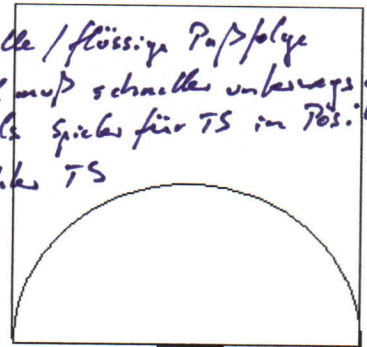 lle / flüssige Paßfolge
muß schneller unterwegs
ls Spieler für TS in Posi
TS